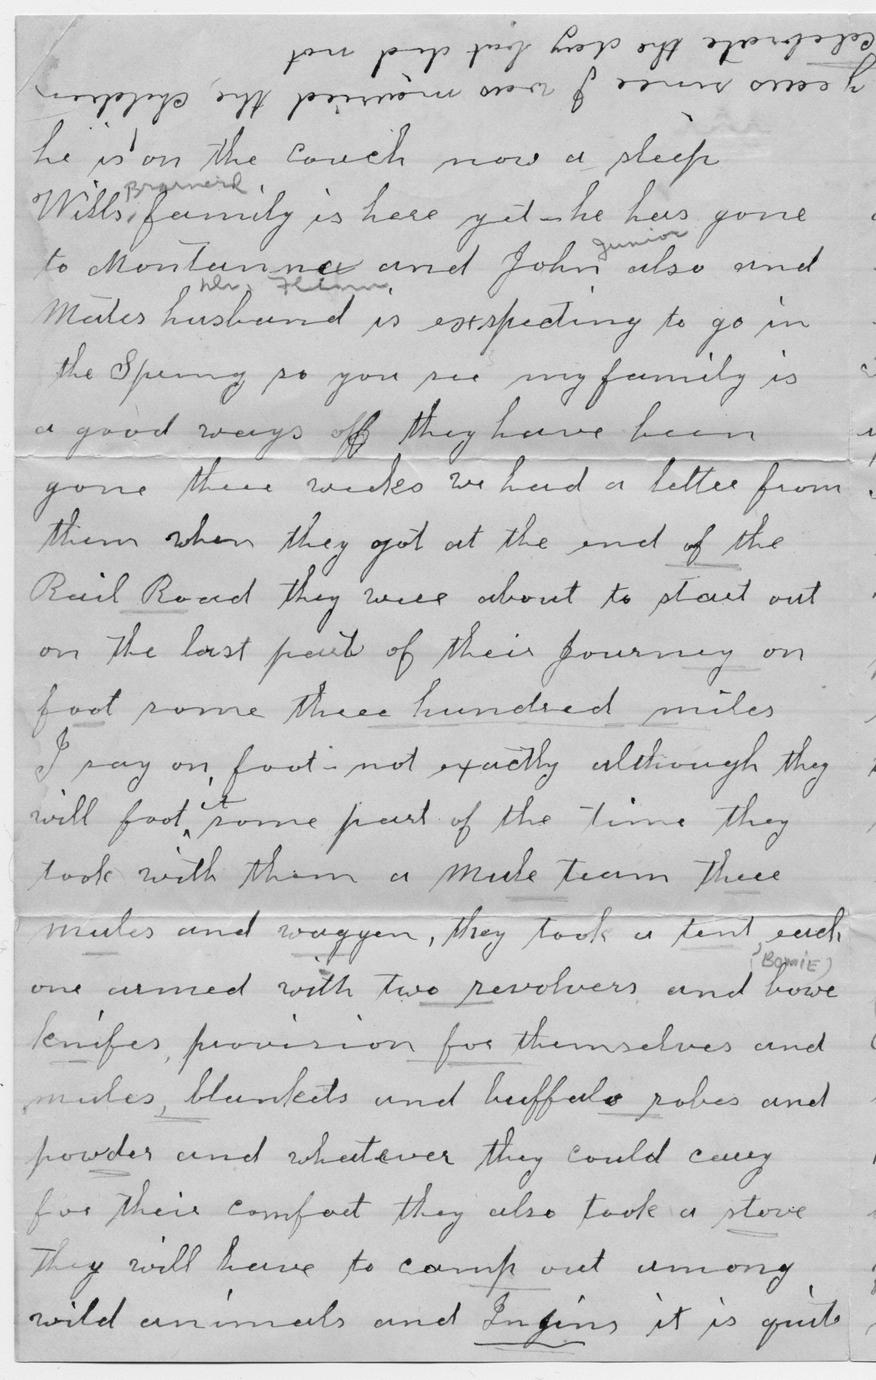 years since I was married the children
celebrate the day but did not
he is on the couch now a sleep
Brainerd
Wills family is here yet - he has gone
Junior
to Montanna and John also and
Mr. Flinn
Mates husband is exspecting to go in
the Spring so you see my family is
a good ways off they have been
gone three weeks we had a letter from
them when they got at the end of the
Rail Road they were about to start out
on the last part of their Journey on
foot some three hundred miles
I say on foot - not exactly although they
will foot it some part of the time they
took with them a Mule team three
mules and waggen, they took a tent, each
(BOWIE)
one armed with two revolvers and bowe
knifes, provision for themselves and
mules, blankets and buffalo robes and
powder and whatever they could cary
for their comfort they also took a stove
they will have to camp out among
wild animals and Injins it is quite